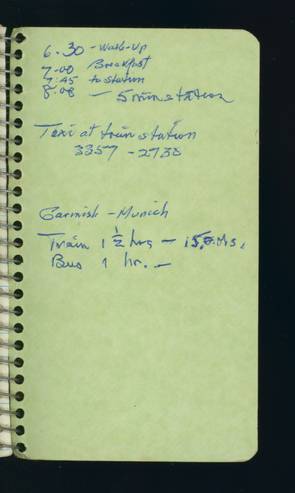 6.30 - Wake-Up
7-00 Breakfast
7:45 to station
8:08 - 5 min station
Taxi at train station
3357 - 2738
Garmish - Munich
Train 1 1/2 hrs -
Bus 1 hr. -